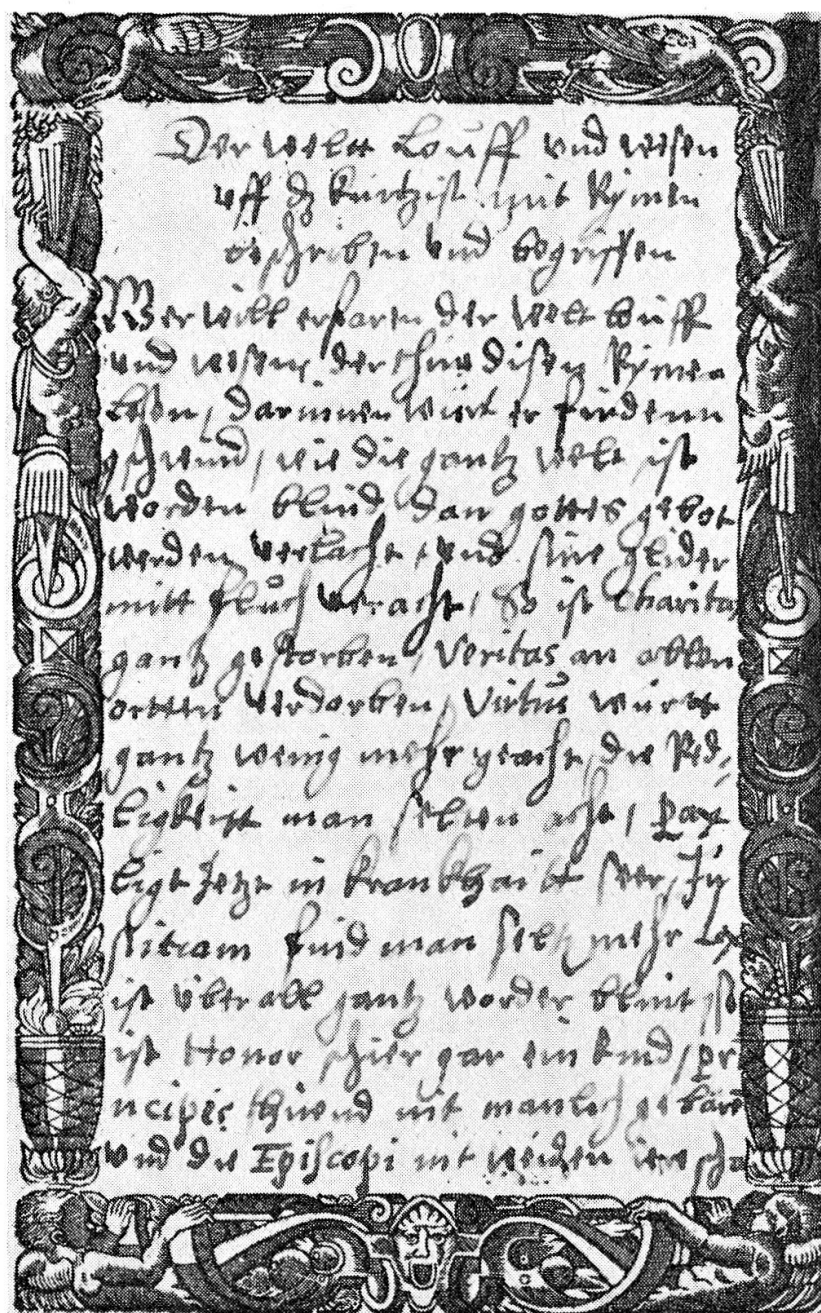 Der weltt Louff vnd wesen
vff dz kurtzist mit Rÿmen
beschriben vnd begriffen
Wer will erfaren der welt louff
vnd wesen, der thüe disen Rÿmen
lesen, darinnen würt er findenn
gschwind, wie die gantz welt ist
worden blind, dan gottes gebot
werden verlacht, vnd sine glider
mitt fluch veracht, So ist Charitas
gantz gestorben, Veritas an allen
ortten verdorben, Virtus württ
gantz wenig mehr geacht, die Red,
ligkeitt man selten acht, Pax
ligt Jetzt in kranckhaitt seer, Ju
stitiam find man selten mehr Lex
ist überall gantz worden blint ist
ist Honor schier gar ein kind, pr
ncipes thuend nit manlich gebären
vnd die Episcopi nit weiden ire scha